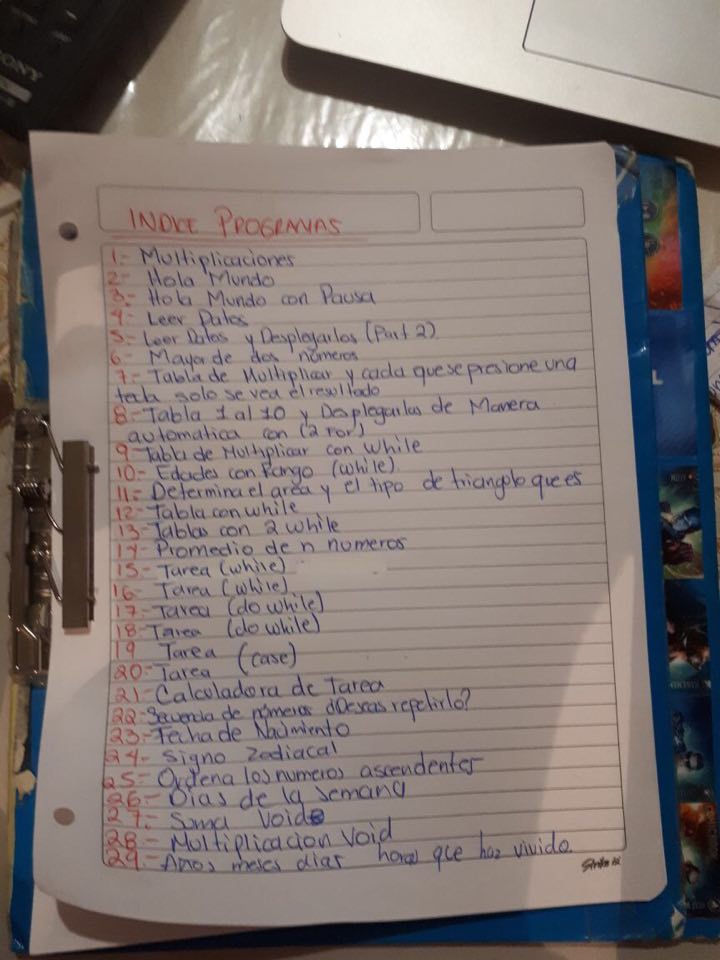 SONY
INDICE PROGRAMAS
1.- Multiplicaciones
2- Hola Mundo
3- Hola Mundo con Pausa
4- Leer Datos
5- Leer Datos y Desplegarlos (Part 2)
6- Mayor de dos números
7- Tabla de Multiplicar y cada que se presione una
tecla solo se vea el resultado
8- Tabla 1 al 10 y Desplegarlas de Manera
automatica con (2 For)
9- Tabla de Multiplicar con while
10- Edades con Rango (while)
11- Determina el area y el tipo de triangulo que es
12- Tabla con while
13- Tablas con 2 while
14- Promedio de n numeros
15- Tarea (while)
16- Tarea (while)
17- Tarea (do while)
18- Tarea (do while)
19 Tarea (case)
20- Tarea
21- Calculadora de Tarea
22- Secuencia de números ¿Deseas repetirlo?
23- Fecha de Nacimiento
24- Signo Zodiacal
25- Ordena los numeros ascendentes
26- Dias de la semana
27- Suma Void
28- Multiplicacion Void
29- Años meses dias horas que haz vivido